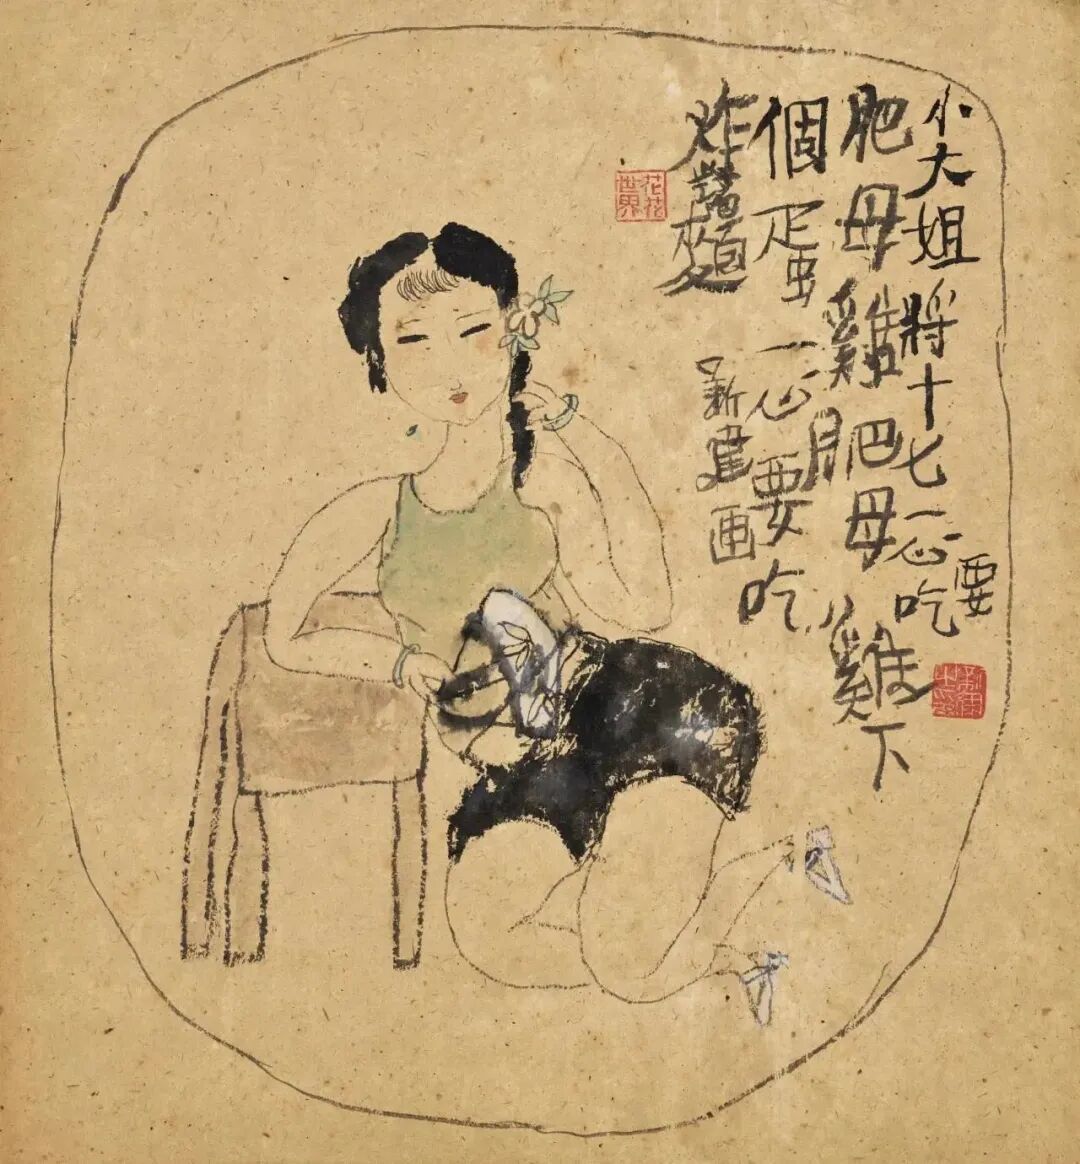 小大姐將十七一心要吃
肥母雞肥母雞下
個蛋一心要吃
炸醬麵
新建画
花花世界